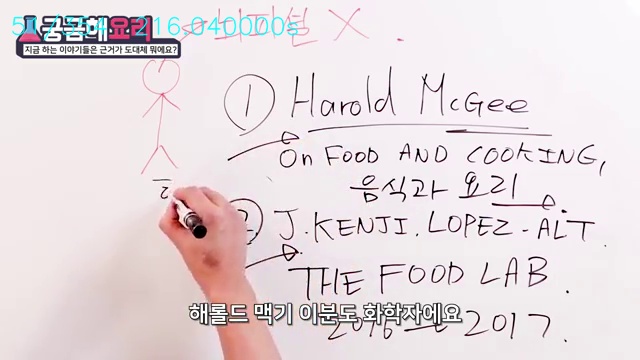 216.040000s
궁금해요리
지금 하는 이야기들은 근거가 도대체 뭐에요?
X.
① Harold McGee
On FOOD AND COOKING,
음식과 요리.
② J.KENJI.LOPEZ-ALT.
THE FOOD LAB.
해롤드 맥기 이분도 화학자에요
2017.